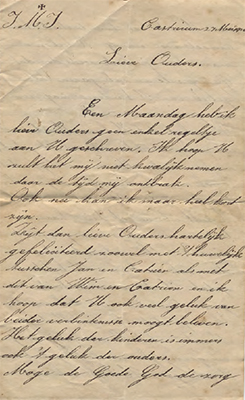 J. M. J.
Castricum 27
Lieve Ouders.
Een Maandag heb ik
lieve Ouders geen enkel regeltje
aan U geschreven. Ik hoop U
zult het mij niet kwalijk nemen
daar de tijd mij ontbrak.
Ook nu kan ik maar heel kort
zijn.
Zijt dan lieve Ouders hartelijk
gefeliciteerd zoowel met 't huwelijk
tusschen Jan en Catrien als met
dit van en Catrien en ik
hoop dat U ook veel geluk van
beider verbintenis moogt beleven.
Het geluk der kinderen is immers
ook 't geluk der ouders.
Moge de Goede God de zorg